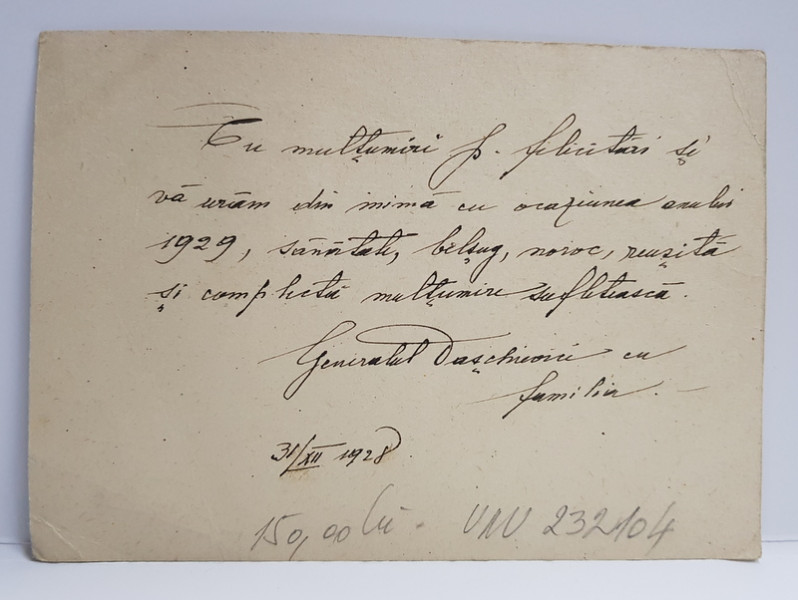 Cu mulțumiri p. felicitări și
vă urăm din inimă cu ocaziunea anului
1929, sănătate, belșug, noroc, reușită
și complectă mulțumire sufletească.
Generalul Dașchievici cu
familia. -
31/XII 1928.
150,00 lei - UNU 232104